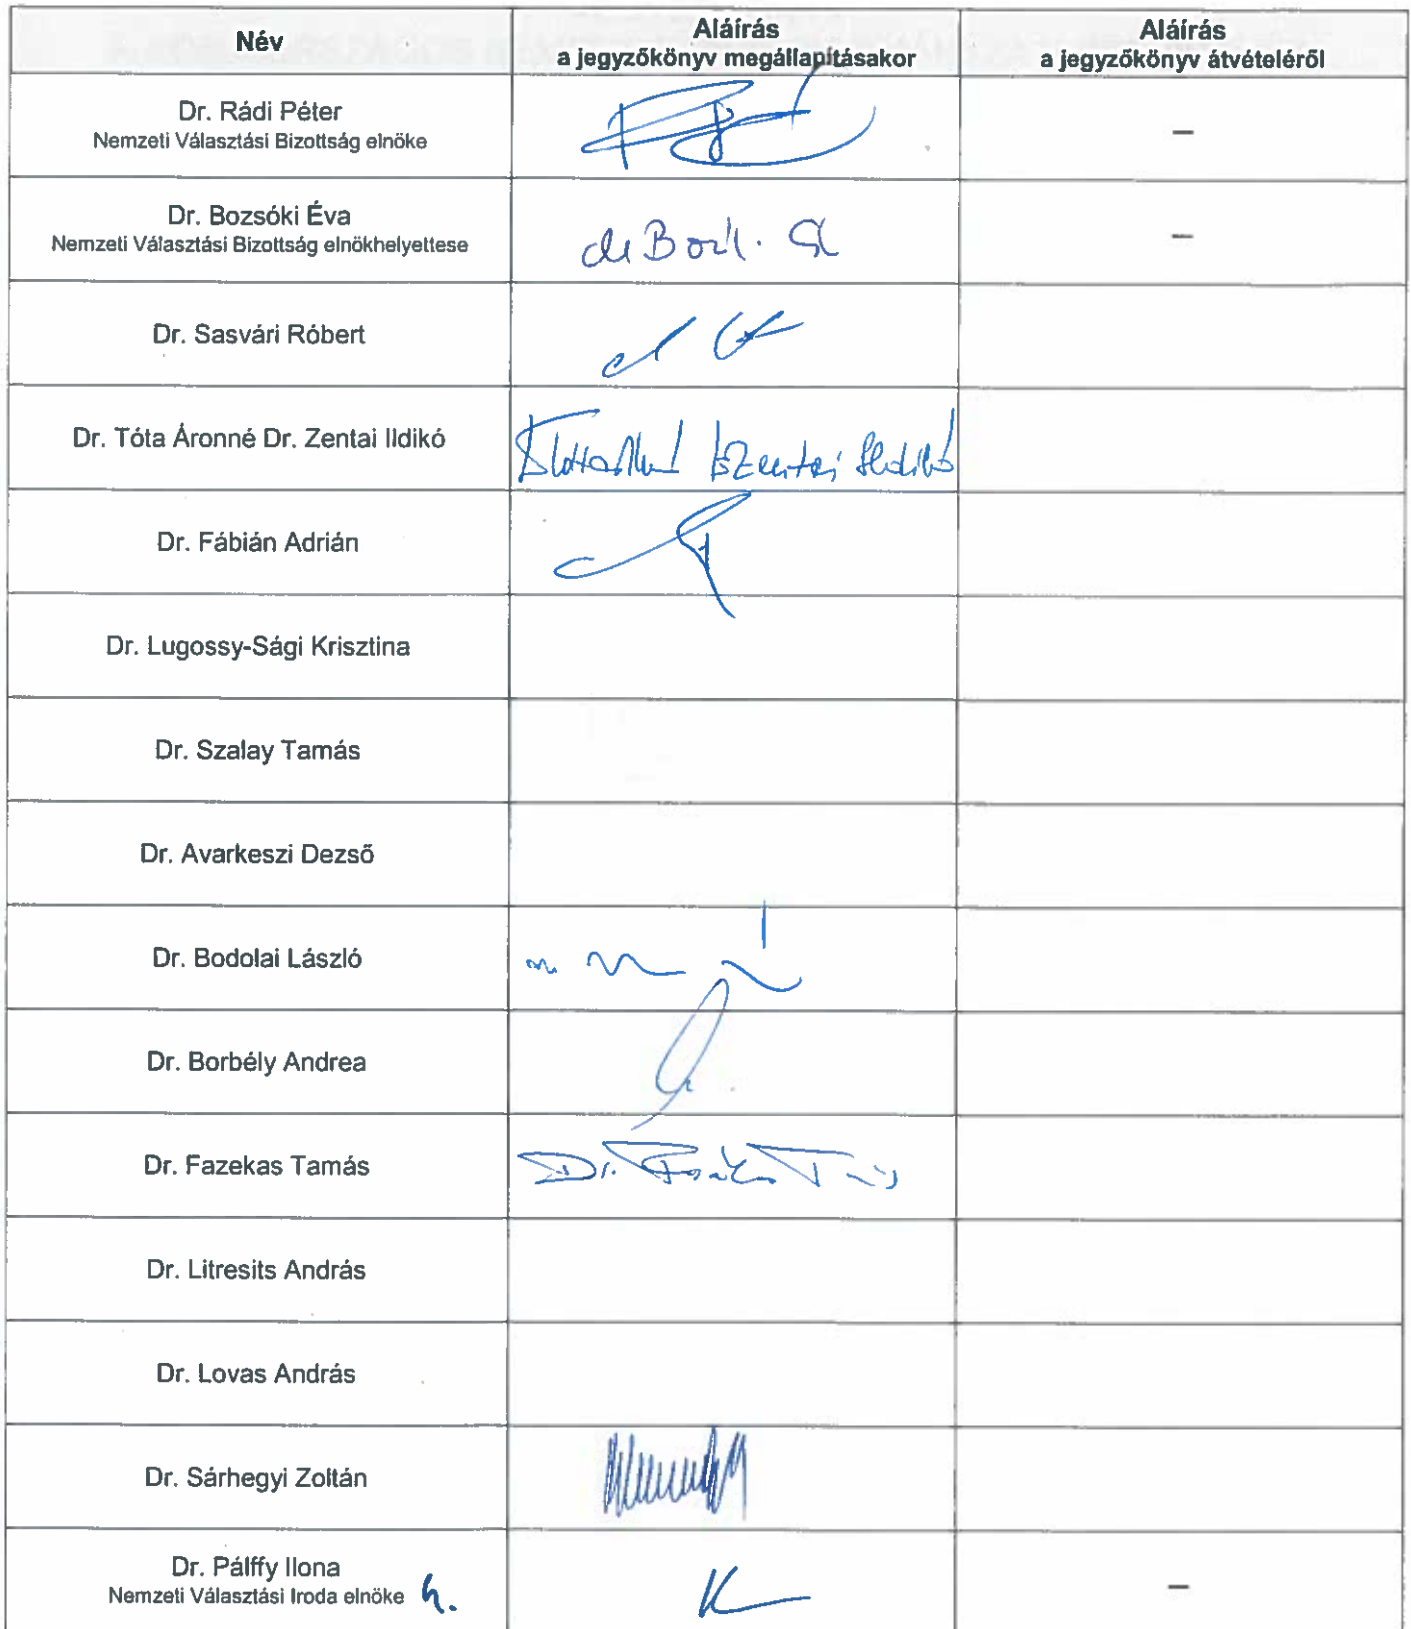 Név
Aláírás
a jegyzőkönyv megállapításakor
Aláírás
a jegyzőkönyv átvételéről
Dr. Rádi Péter
Nemzeti Választási Bizottság elnöke
–
Dr. Bozsóki Éva
Nemzeti Választási Bizottság elnökhelyettese
–
Dr. Sasvári Róbert
Dr. Tóta Áronné Dr. Zentai Ildikó
Dr. Fábián Adrián
Dr. Lugossy-Sági Krisztina
Dr. Szalay Tamás
Dr. Avarkeszi Dezső
Dr. Bodolai László
Dr. Borbély Andrea
Dr. Fazekas Tamás
Dr.
Dr. Litresits András
Dr. Lovas András
Dr. Sárhegyi Zoltán
Dr. Pálffy Ilona
Nemzeti Választási Iroda elnöke h.
–